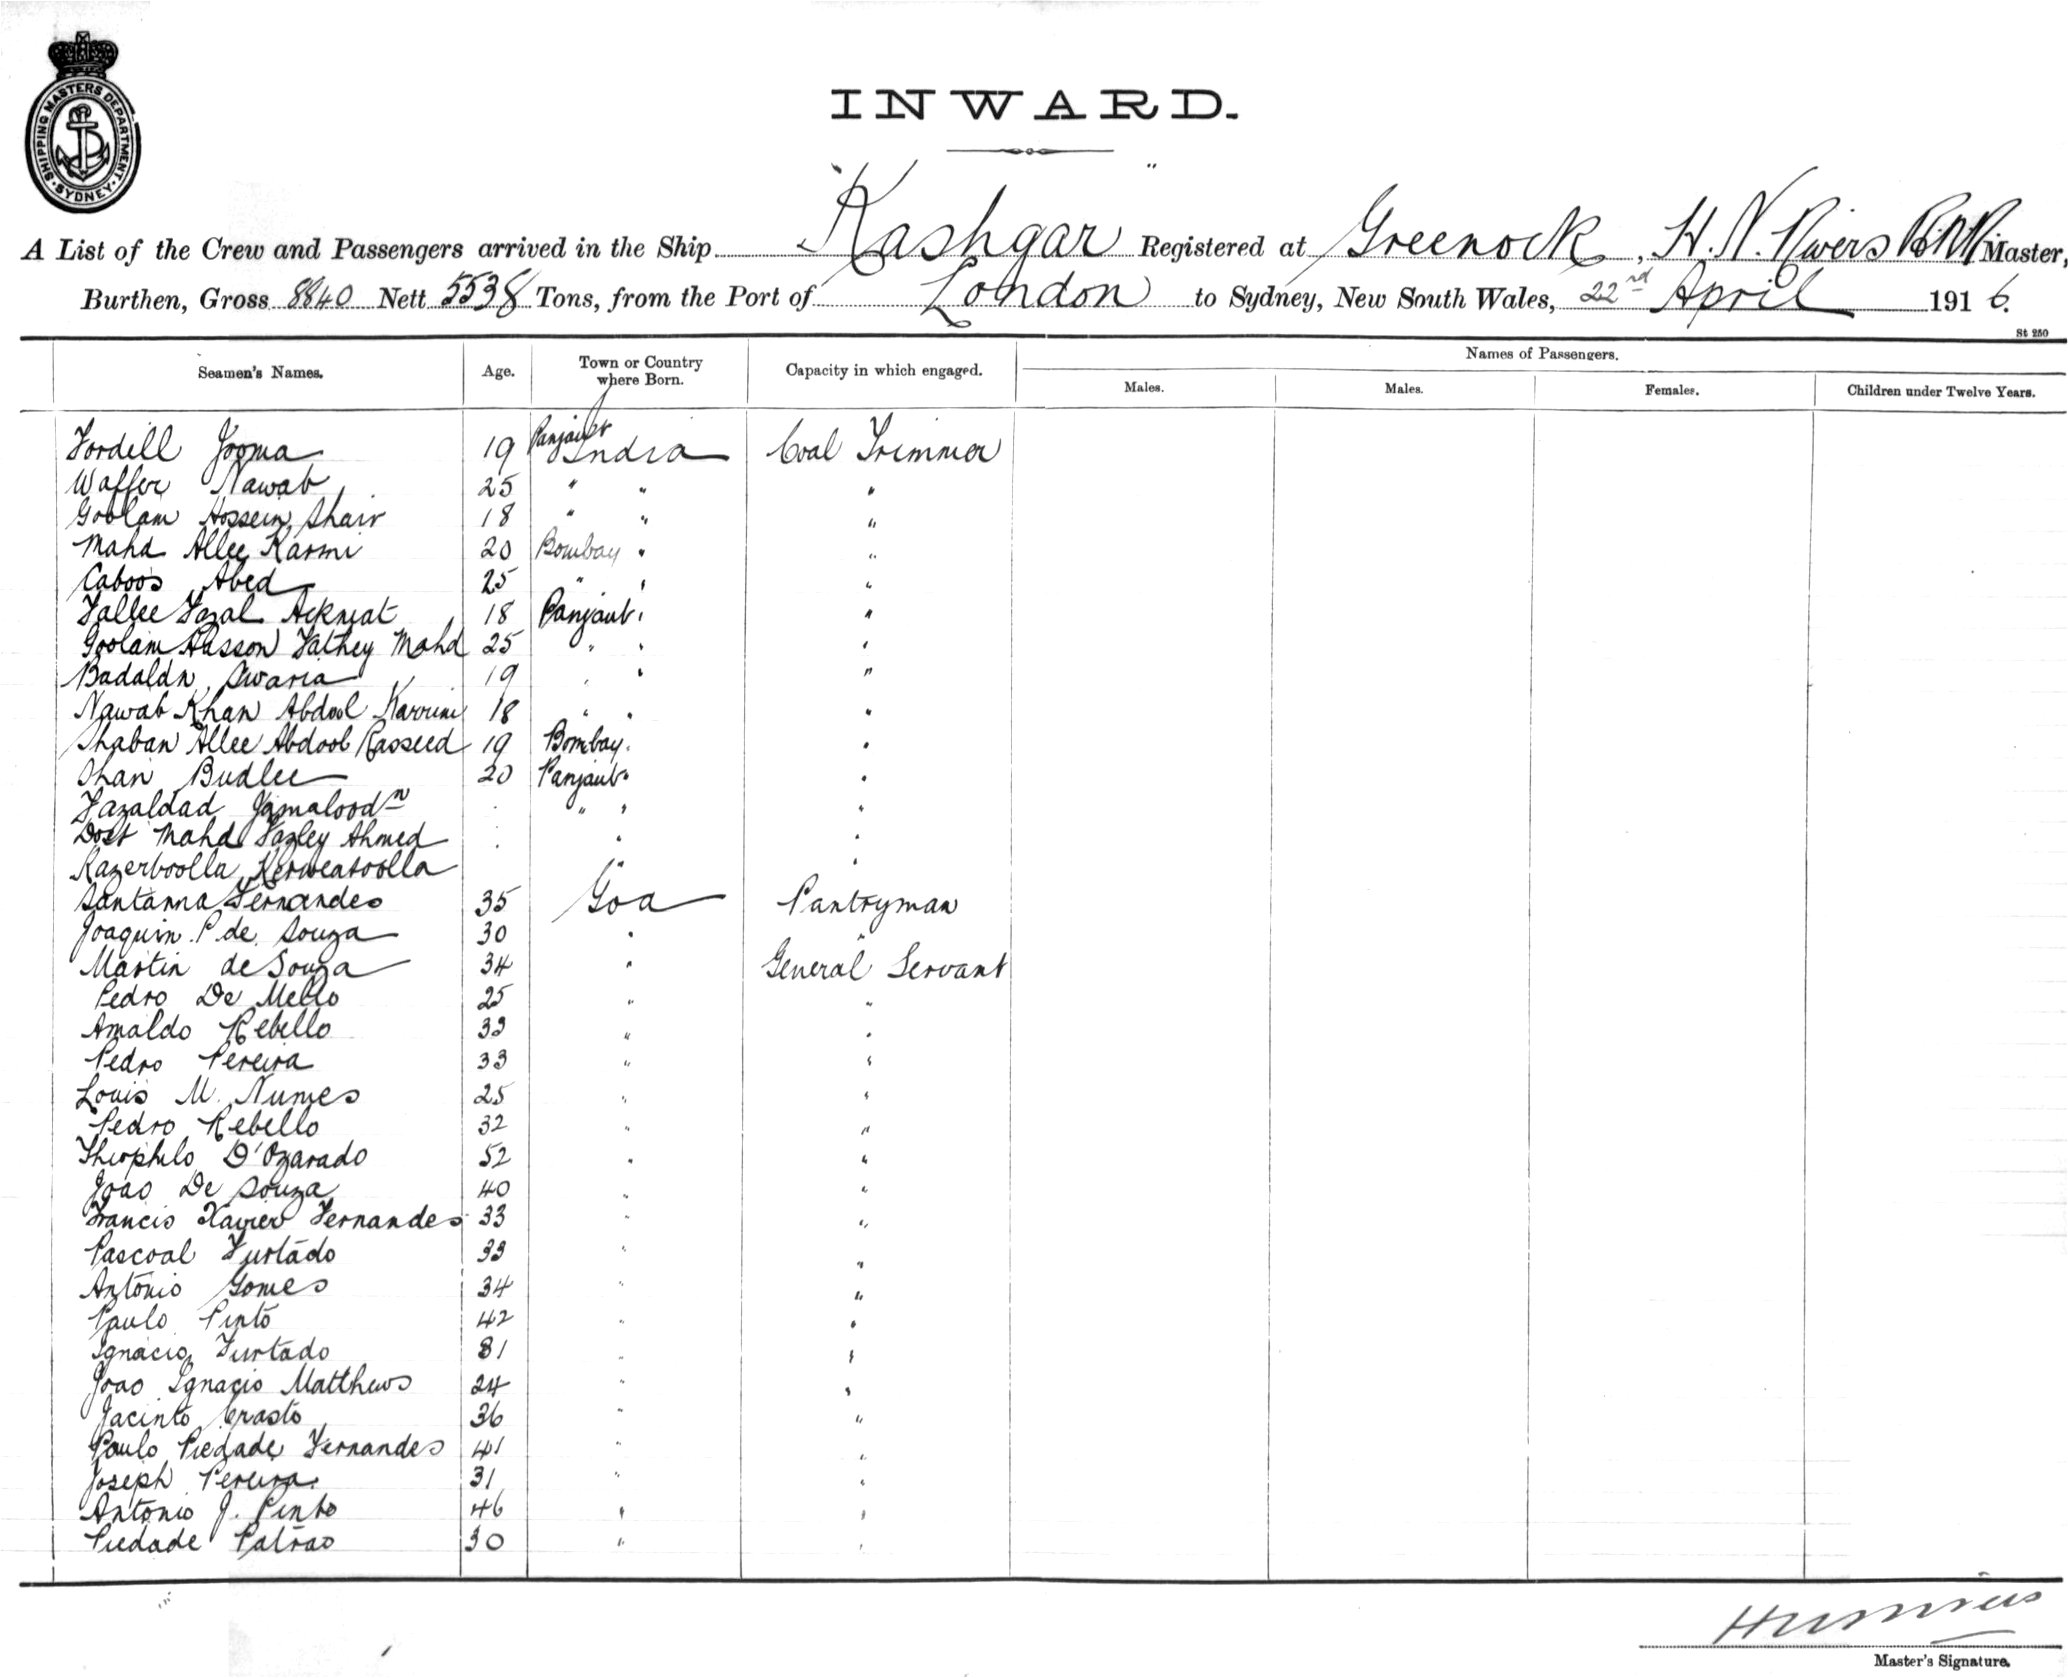 SHIPPING MASTERS DEPARTMENT. SYDNEY.
INWARD.
A List of the Crew and Passengers arrived in the Ship "Kashgar" Registered at Greenock, H. N. Rivers RNR Master,
Burthen, Gross 8840 Nett 5538 Tons, from the Port of London to Sydney, New South Wales, 22nd April 1916.
St 250
Seamen's Names. Age. Town or Country where Born. Capacity in which engaged. Names of Passengers.
Males. Males. Females. Children under Twelve Years.
Fordill Jooma 19 Panjaub India Coal Trimmer
Waffer Nawab 25 " " "
Goolam Hossein Shair 18 " " "
Mahd Allee Karmi 20 Bombay " "
Caboos Abed 25 " " "
Fallee Fazal Ackmat 18 Panjaub " "
Goolam Hasson Fathey Mahd 25 " " "
Badaldn Swaria 19 " " "
Nawab Khan Abdool Karrim 18 " " "
Shaban Allee Abdool Rasseed 19 Bombay " "
Shan Budlee 20 Panjaub " "
Fazaldad Jamaloodn " " " "
Dost Mahd Fazley Ahmed " " "
Kazerboolla " "
Santanna Fernandes 35 Goa Pantryman
Joaquin P. de Souza 30 " "
Martin de Souza 34 " General Servant
Pedro De Mello 25 " "
Arnaldo Rebello 33 " "
Pedro Pereira 33 " "
Louis M. Nunes 25 " "
Pedro Rebello 32 " "
Theophilo D'Ozarado 52 " "
Joao De Souza 40 " "
Francis Xavier Fernandes 33 " "
Pascoal Furtado 33 " "
Antonio Gomes 34 " "
Paulo Pinto 42 " "
Ignacio Furtado 31 " "
Joao Ignacio Matthews 24 " "
Jacinto Crasto 36 " "
Paulo Piedade Fernandes 41 " "
Joseph Pereira 31 " "
Antonio J. Pinto 46 " "
Piedade Patrao 30 " "
HNRivers
Master's Signature.